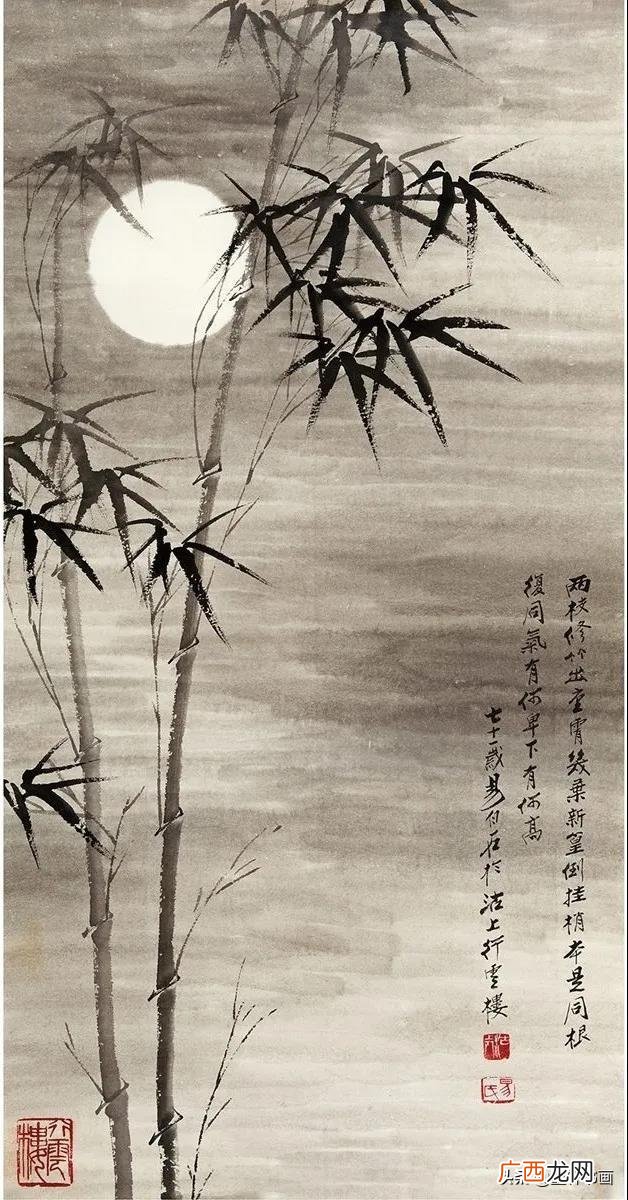 两枝修竹出重霄幾葉新篁倒挂梢本是同根
復同氣有何卑下有何高
七十一歲易石於沽上行雲樓
易氏
行雲樓
广西龙网
画